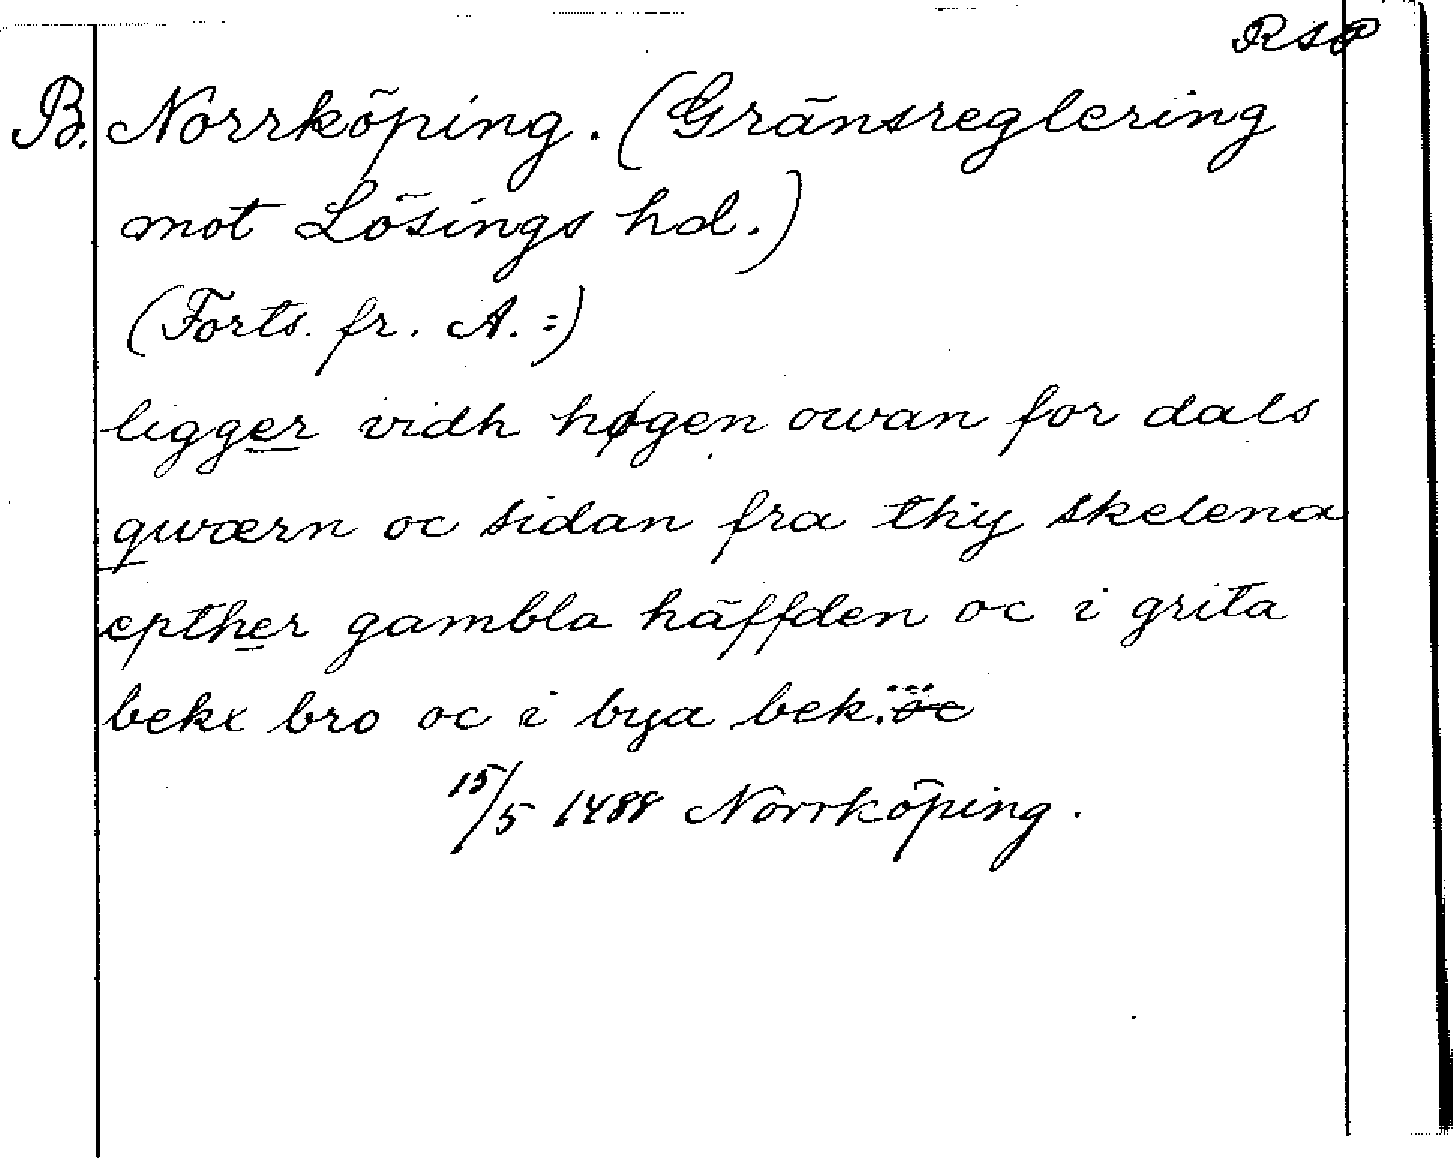 RSP
B. Norrköping. (Gränsreglering
mot Lösings hd.)
(Forts. fr. A. =)
ligger vidh høgen owan for dals
qwærn oc sidan fra thy skelena
epther gambla häffden oc i grita
bekx bro oc i bya bek. oc
15/5 1488 Norrköping.